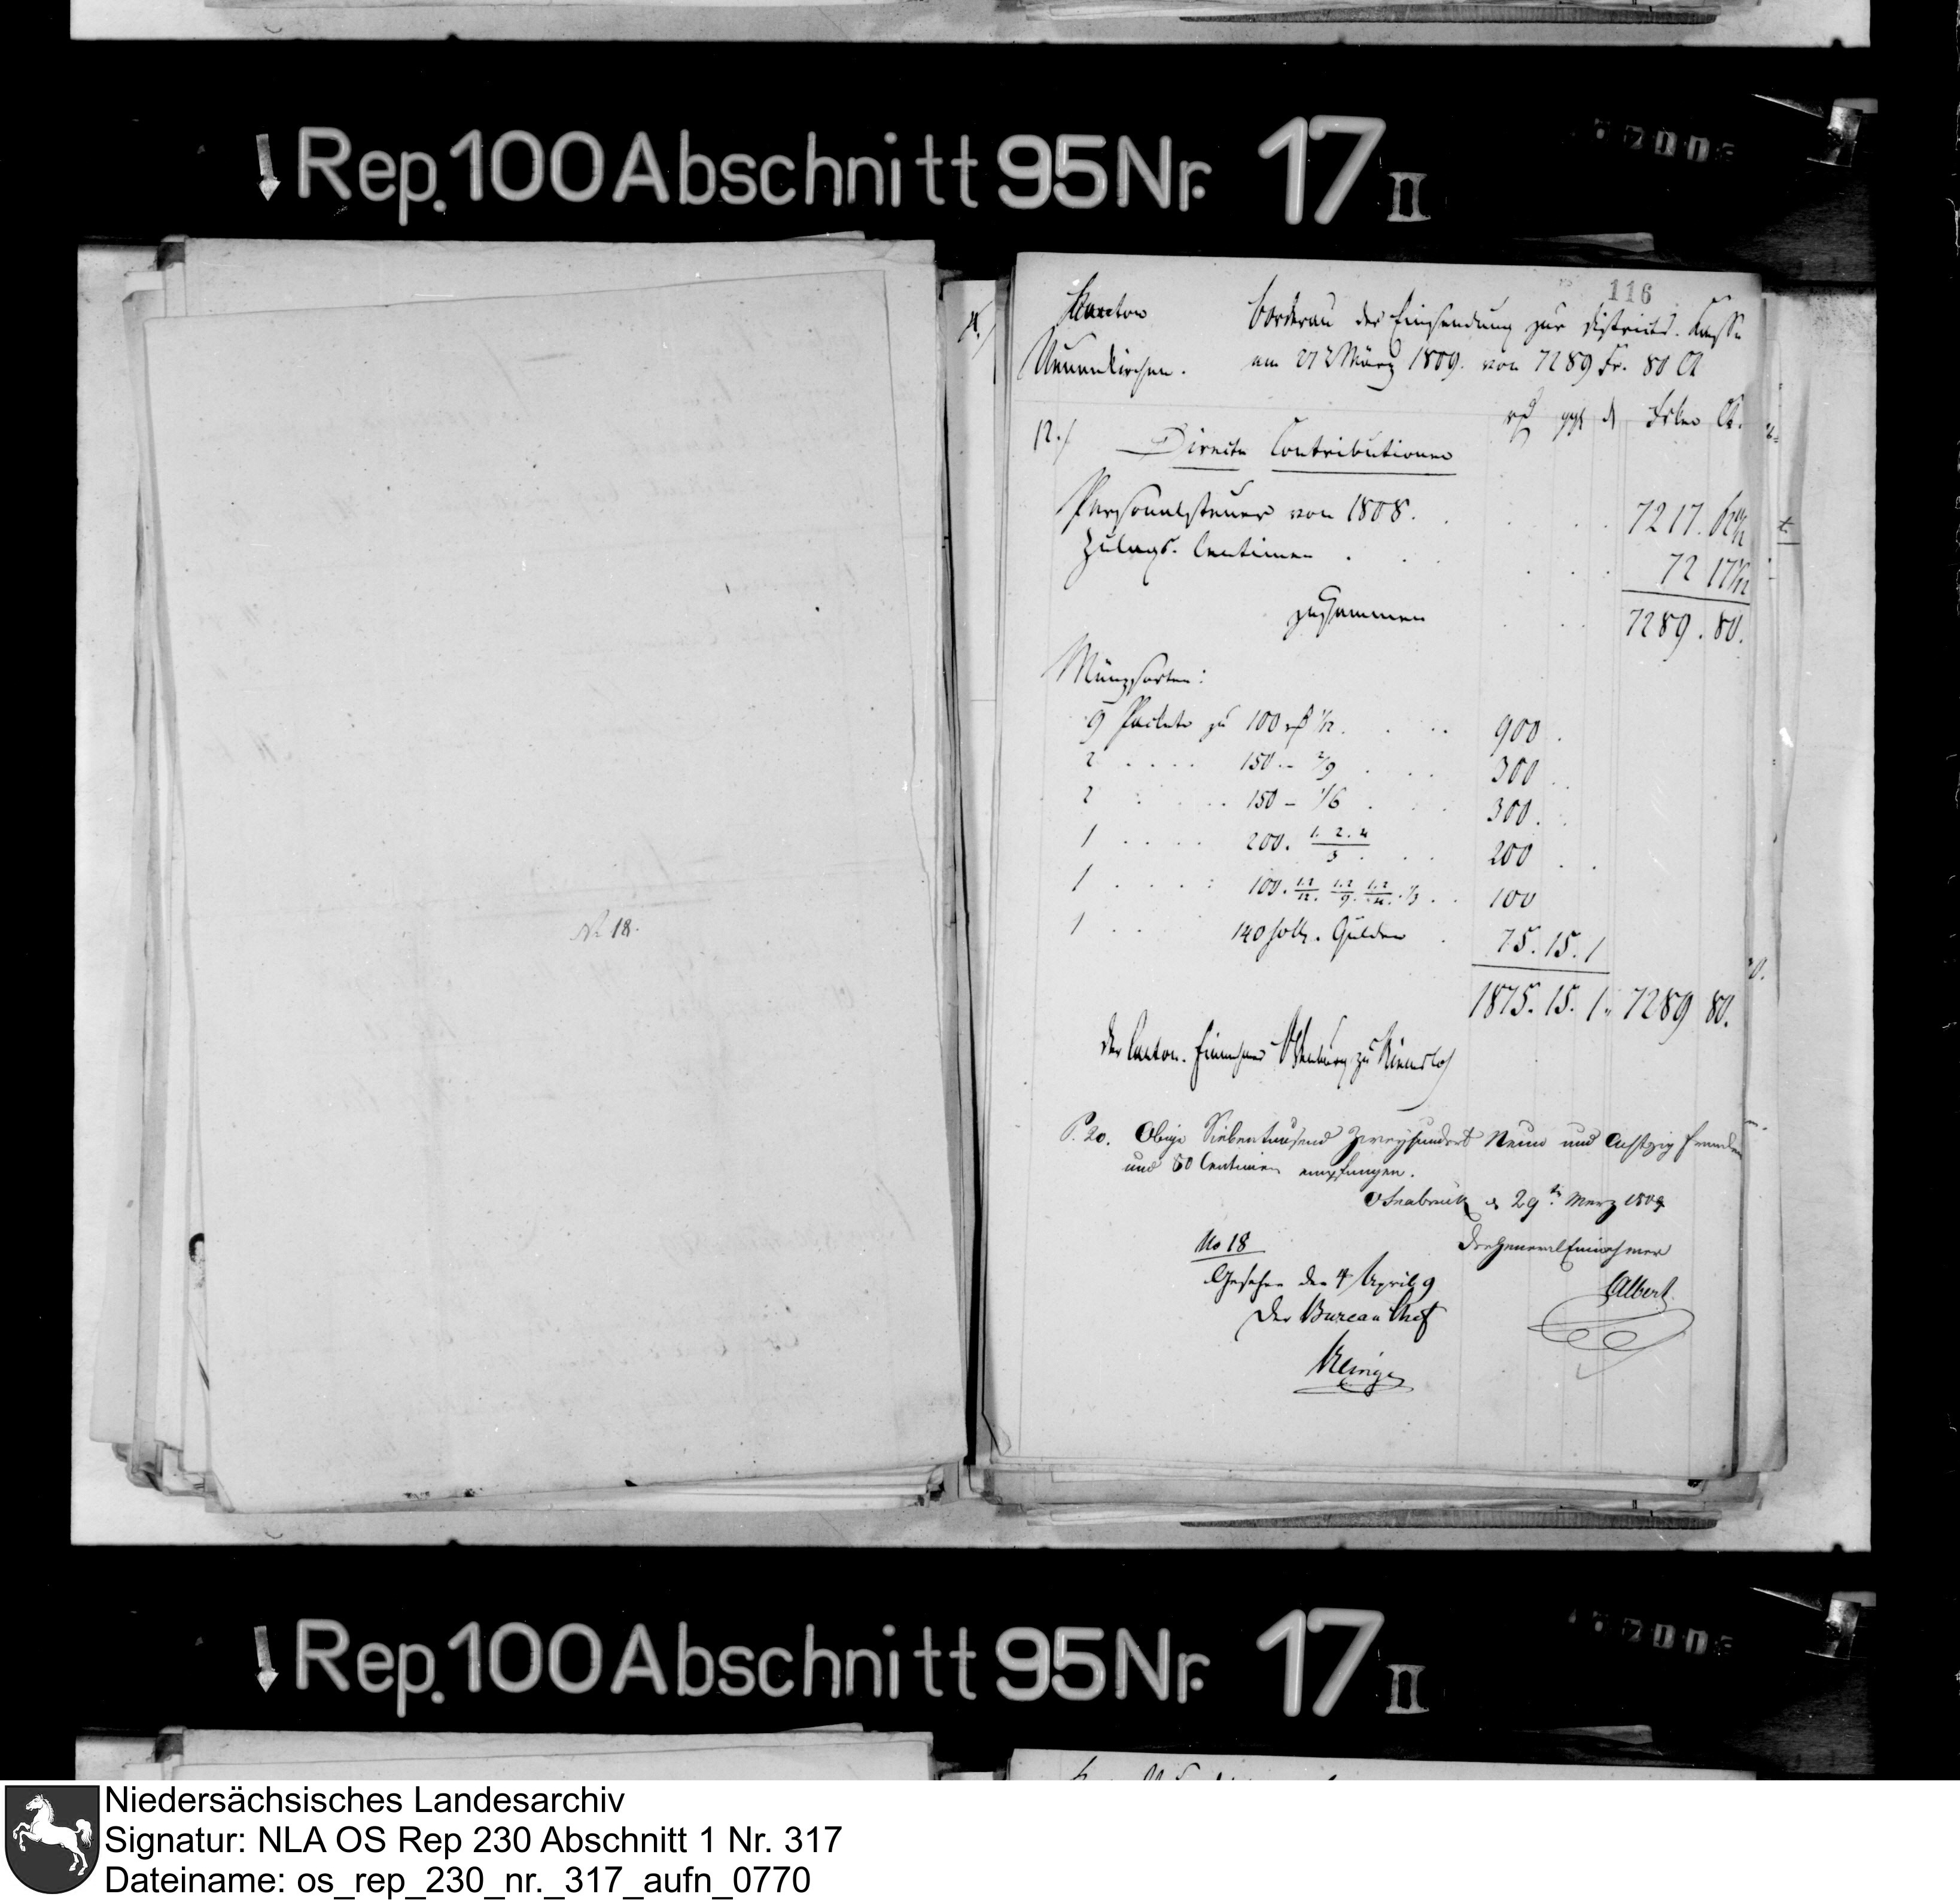 Rep. 100 Abschnitt 95 Nr. 17 II
116
Kanton Borderau der Einsendung zur Districts-Kasse
Neuenkirchen. am 27 März 1809. von 7289 Fr. 80 Ct
rf ggl d Frken Ct.
12./ Directe Contributionen
Personalsteuer von 1808. 7217. 62½
Zulags-Centimen 72 17½
zusammen 7289. 80.
Münzsorten:
9 Packete zu 100 rf 1/12. 900.
2 150 - 2/9 300.
2 150 - 1/6 300.
1 200. 1. 2. 4/3 200
1 100. 1.2/12. 1.2/9. 1.2/4. 1/3 100
1 140 holl. Gulden 75. 15. 1
1875. 15. 1. 7289 80.
Der Canton-Einnehmer zu Riemsloh
P. 20. Obige Siebentausend Zweyhundert Neun und Achtzig Franken
und 80 Centimen empfangen.
Osnabrück d 29t März 1809
Der General Einnehmer
Albert
No 18
Gesehen den 4 April 9
Der Bureau Chef
No 18.
Rep. 100 Abschnitt 95 Nr. 17 II
Niedersächsisches Landesarchiv
Signatur: NLA OS Rep 230 Abschnitt 1 Nr. 317
Dateiname: os_rep_230_nr._317_aufn_0770